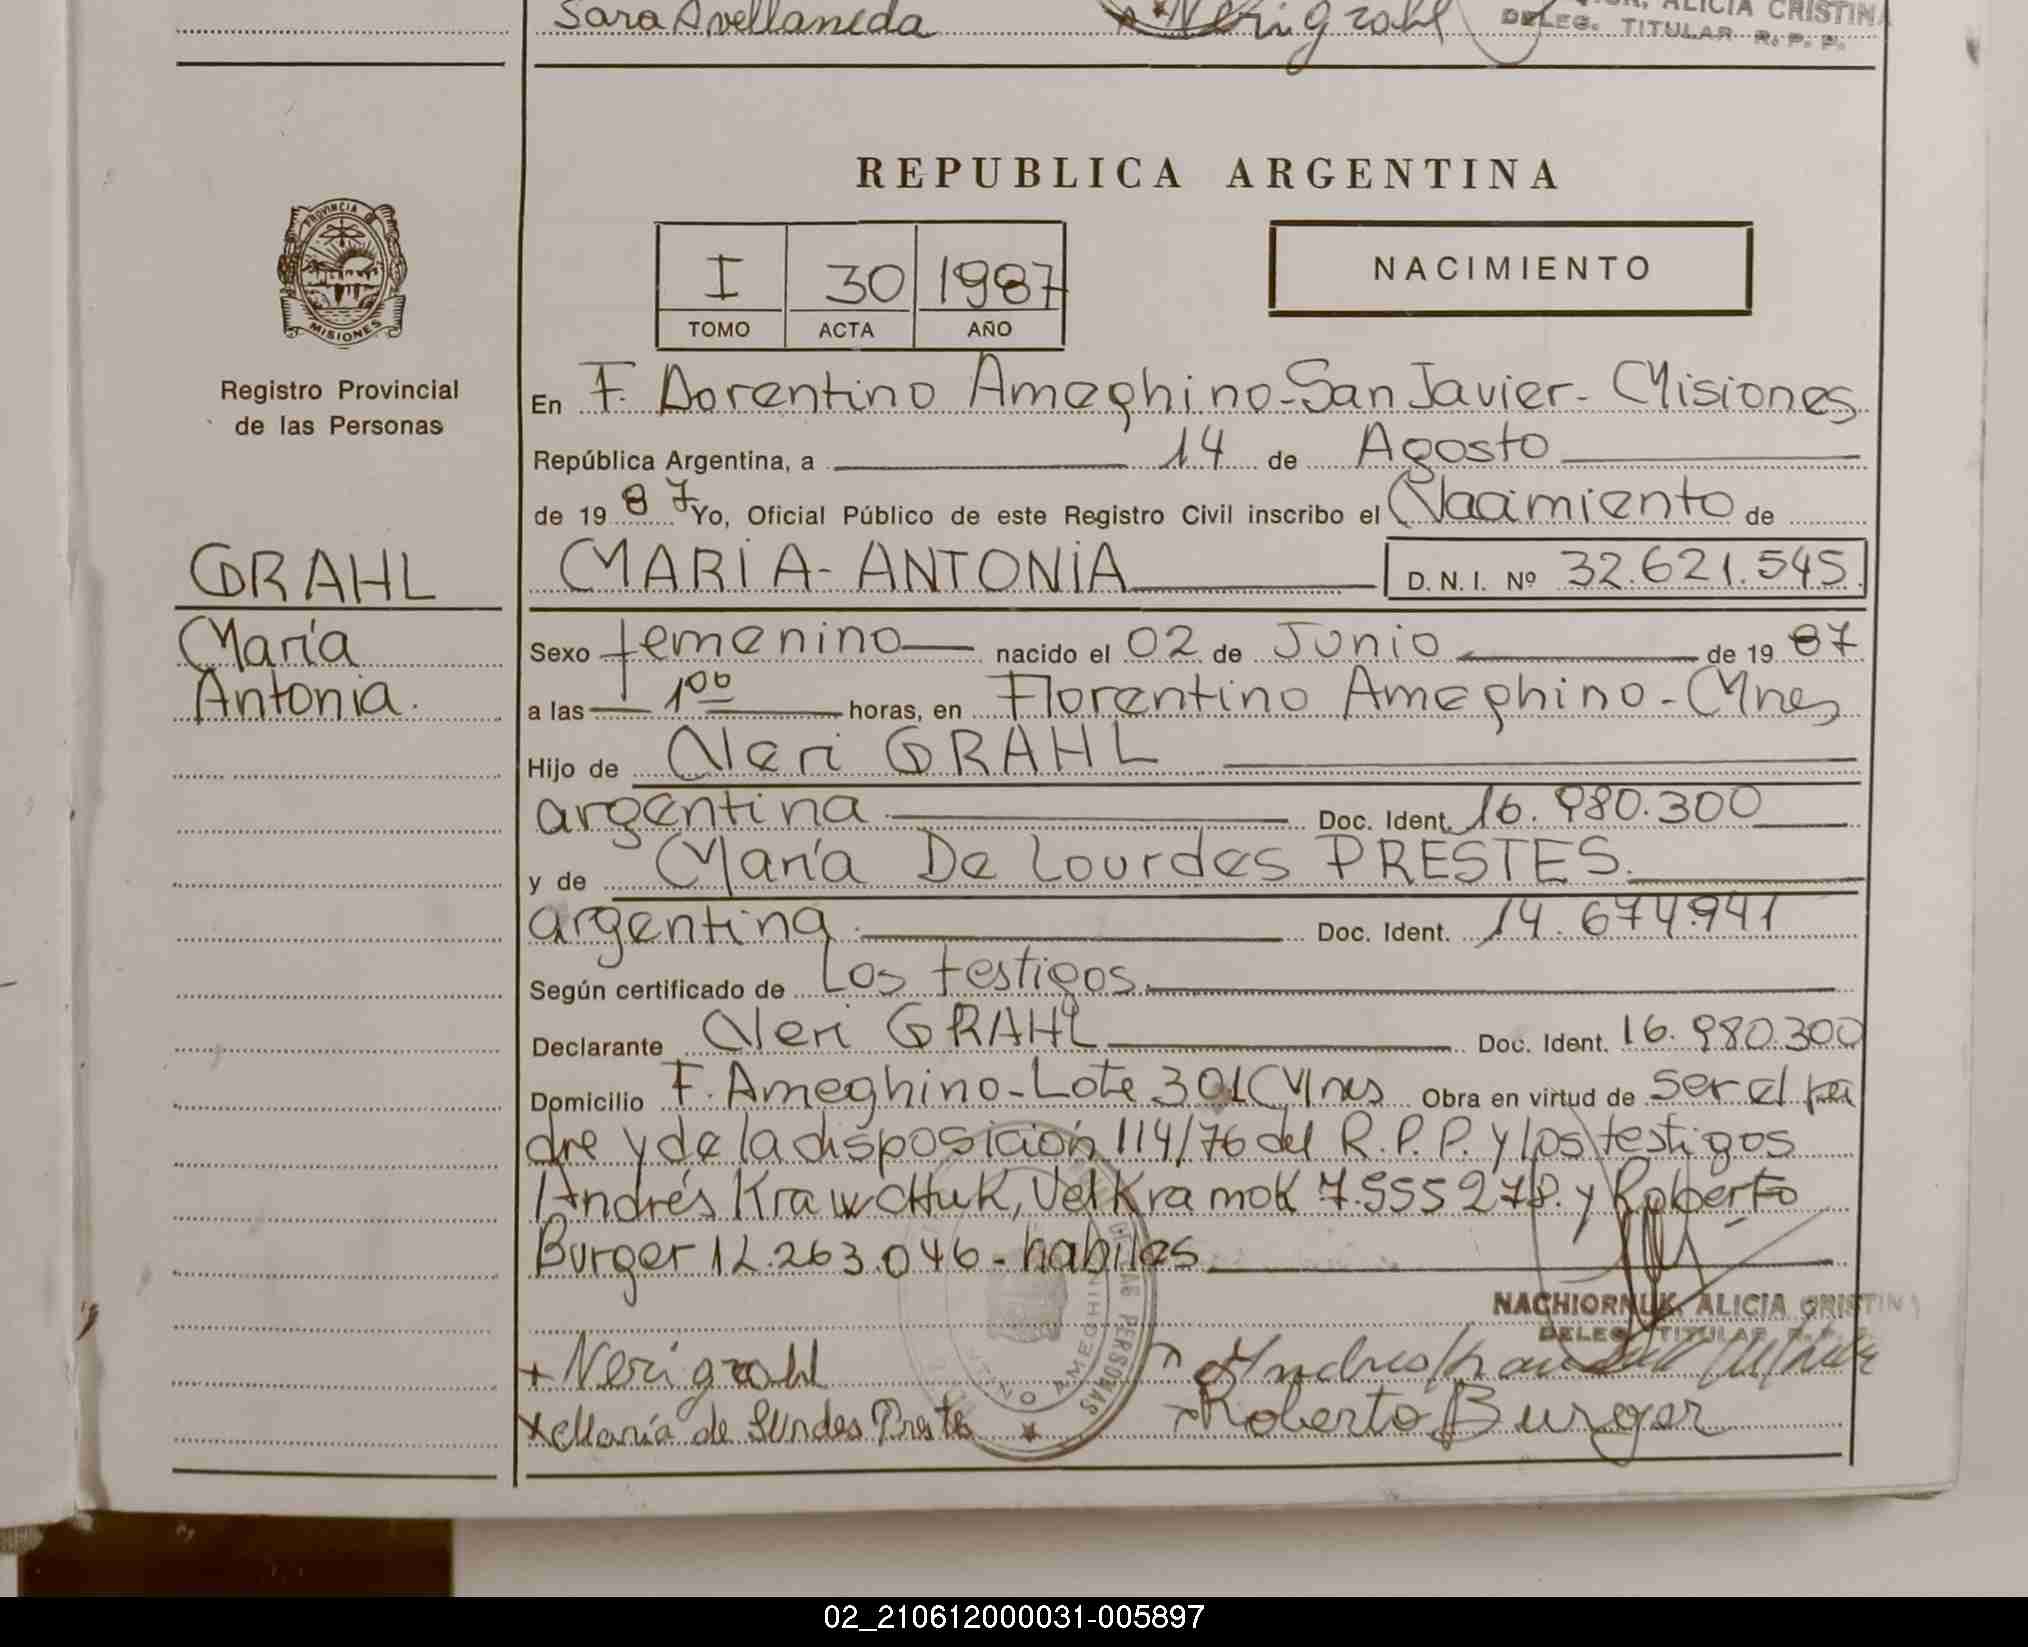 Sara Avellaneda
Neri grahl
ALICIA CRISTINA
DELEG. TITULAR R. P. P.
REPUBLICA ARGENTINA
PROVINCIA DE
MISIONES
I 30 1987
TOMO ACTA AÑO
NACIMIENTO
Registro Provincial
de las Personas
GRAHL
María
Antonia.
En F. Dorentino Ameghino-San Javier-Misiones
República Argentina, a 14 de Agosto
de 1987 Yo, Oficial Público de este Registro Civil inscribo el Nacimiento de
MARIA-ANTONIA D. N. I. Nº 32.621.545.
Sexo femenino nacido el 02 de Junio de 1987
a las 1 00 horas, en Florentino Ameghino-Mnes
Hijo de Neri GRAHL
argentina Doc. Ident. 16.980.300
y de María De Lourdes PRESTES.
argentina Doc. Ident. 14.674.941
Según certificado de Los testigos.
Declarante Neri GRAHL Doc. Ident. 16.980.300
Domicilio F. Ameghino-Lote 301 Mnes Obra en virtud de ser el pa
dre y de la disposición 114/76 del R.P.P. y los testigos
Andrés Krawchuk, Vel Kramok 7.555278. y Roberto
Burger 12.263.046-habiles
NACHIORNUK, ALICIA CRISTIN
DELEG. TITULAR R. P.
+ Neri grahl
x María de Lurdes Preste
Roberto Burger
DE LAS PERSONAS
TINO AMEGHINO
02_210612000031-005897